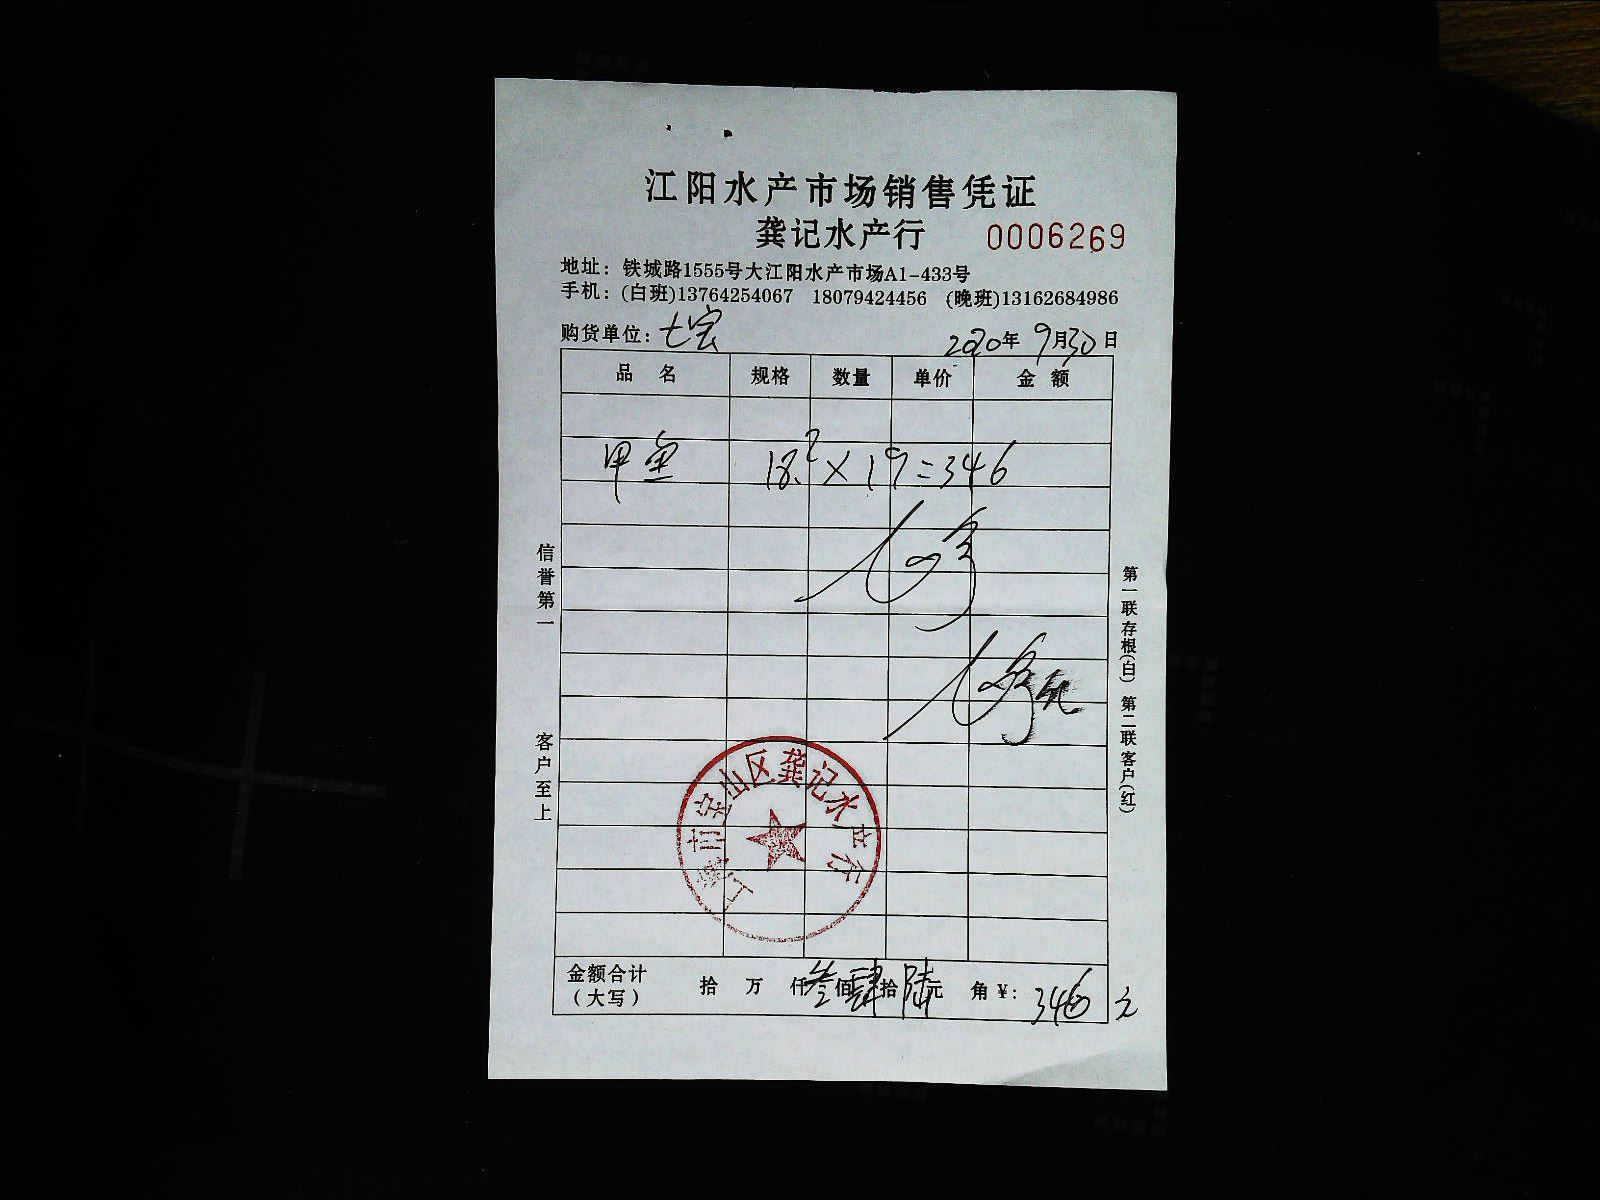 江阳水产市场销售凭证
龚记水产行 0006269
地址：铁城路1555号大江阳水产市场A1-433号
手机：(白班)13764254067 18079424456 (晚班)13162684986
购货单位：七宝 2020年9月30日
品名 规格 数量 单价 金额
甲鱼 18.2×19=346
信誉第一
客户至上
第一联存根(白) 第二联客户(红)
上海市宝山区龚记水产行
金额合计 拾 万 仟叁佰肆拾陆元 角 ¥: 346元
（大写）